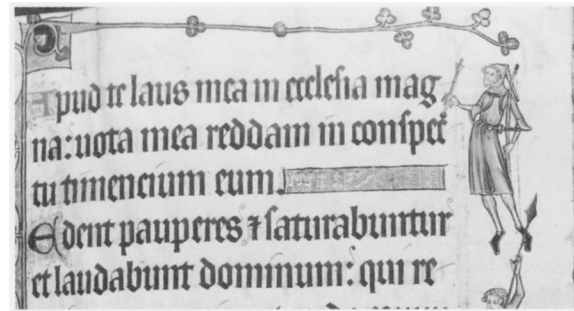 Apud te laus mea in eccleſia mag
na: uota mea reddam in conſpec
tu timencium eum.
Edent pauperes ⁊ ſaturabuntur
et laudabunt dominum: qui re